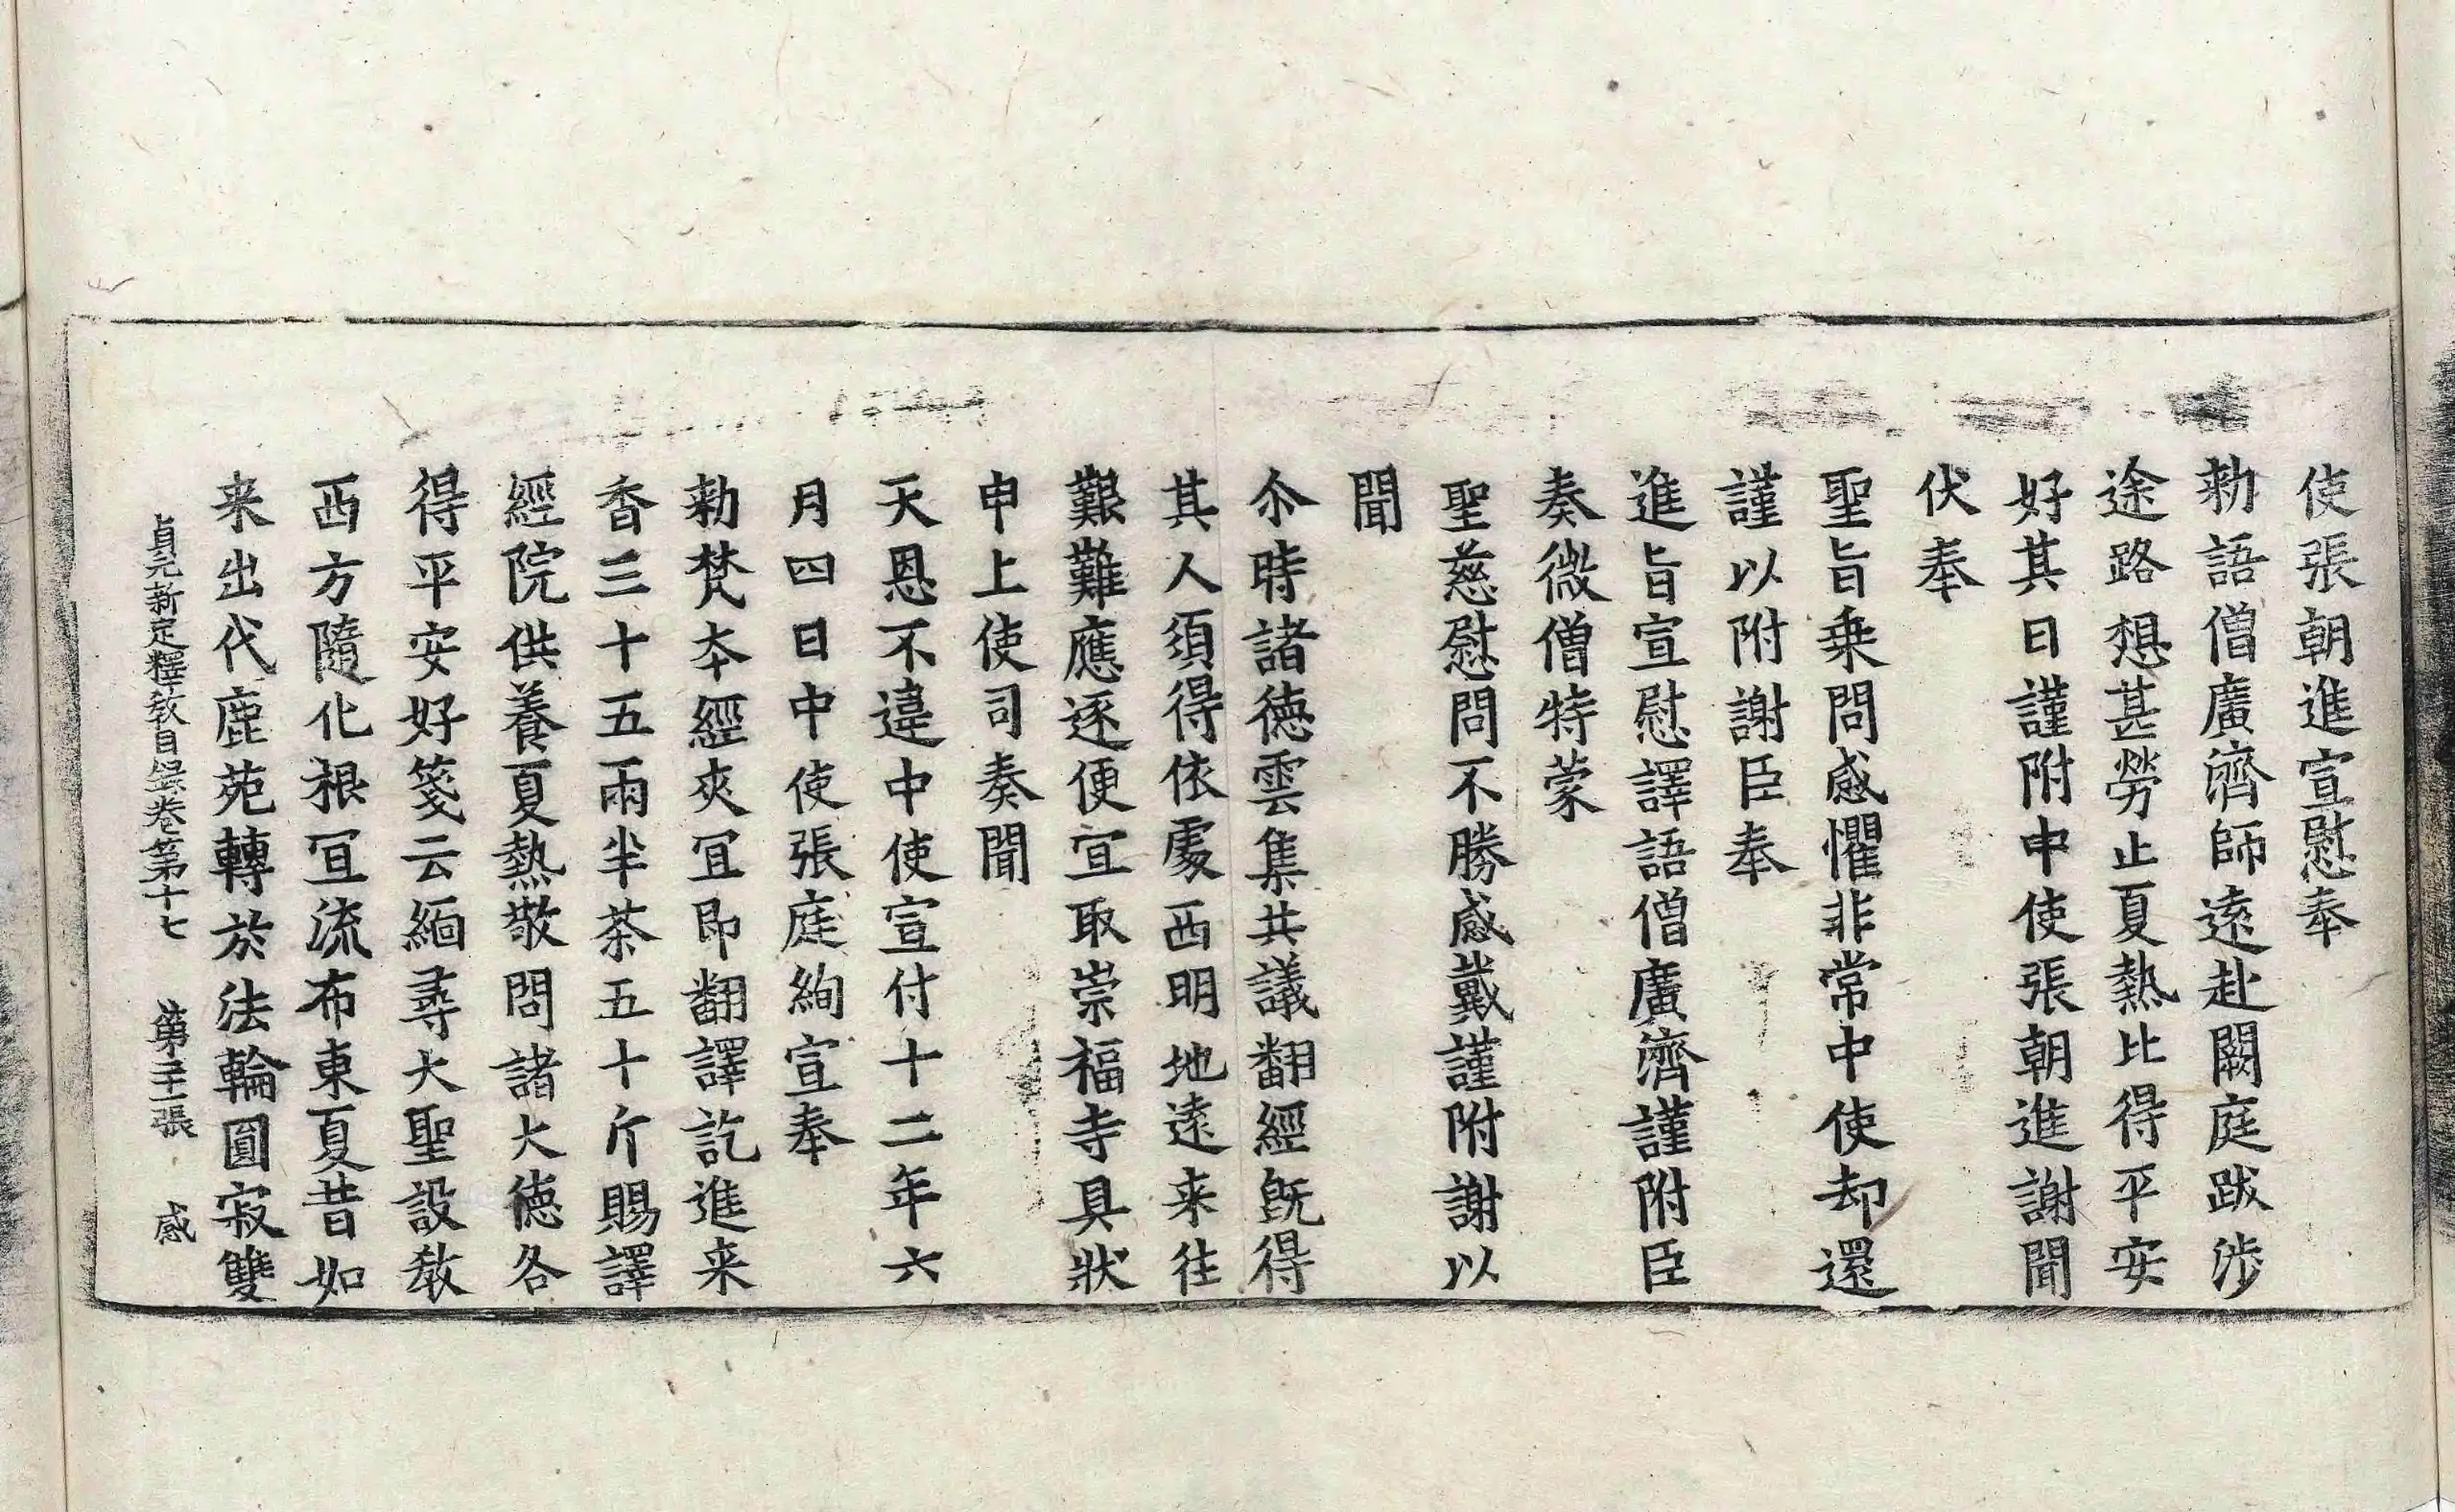 使張朝進宣慰奉
勑語僧廣濟師遠赴闕庭跋涉
途路想甚勞止夏熱比得平安
好其日謹附中使張朝進謝聞
伏奉
聖旨乗問感懼非常中使却還
謹以附謝臣奉
進旨宣慰譯語僧廣濟謹附臣
奏微僧特蒙
聖慈慰問不勝感戴謹附謝以
聞
尒時諸德雲集共議翻經旣得
其人須得依處西明地遠来往
艱難應逐便宜取崇福寺具狀
申上使司奏聞
天恩不違中使宣付十二年六
月四日中使張庭絢宣奉
勑梵夲經夾冝即翻譯訖進来
香三十五兩半茶五十斤賜譯
經院供養夏熱敬問諸大德各
得平安好箋云緬尋大聖設敎
西方隨化根冝流布東夏昔如
来出代鹿苑轉於法輪圓寂雙
貞元新定釋敎目錄卷第十七 第二十二張 感